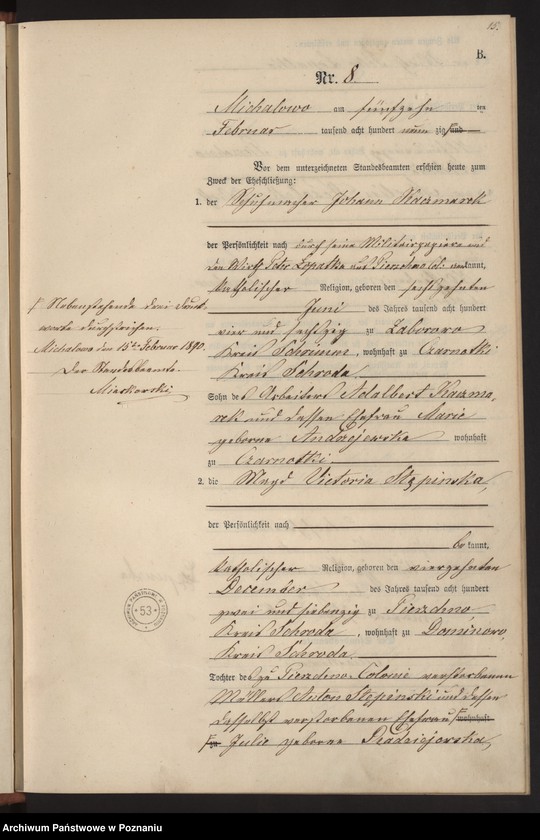 15.
B.
Nr. 8
Michalowo am fünfzehn ten
Februar tausend acht hundert neun zig und
Vor dem unterzeichneten Standesbeamten erschien heute zum
Zweck der Eheschließung:
1. der Schuhmacher Johann Kaczmarek
der Persönlichkeit nach durch seine Militairpapiere und
den Wirth Peter Lopatka aus Pierzchno Col. erkannt,
katholischer Religion, geboren den sechszehnten
Juni des Jahres tausend acht hundert
vier und sechszig zu Zaborowo
Kreis Schrimm, wohnhaft zu Czarnotki
Kreis Schroda
Sohn des Arbeiters Adalbert Kaczma,
rek und dessen Ehefrau Marie
geborene Andrzejewska wohnhaft
zu Czarnotki
2. die Magd Victoria Stępinska,
der Persönlichkeit nach
be kannt,
katholischer Religion, geboren den vierzehnten
December des Jahres tausend acht hundert
zwei und siebenzig zu Pierzchno
Kreis Schroda, wohnhaft zu Dominowo,
Kreis Schroda
Tochter des zu Pierzchno Colonie verstorbenen
Müllers Anton Stępinski und dessen
daselbst verstorbenen Ehefrau wohnhaft
zu Julie geborene Radziejewska,
Nebenstehende drei Druck
worte durchstrichen.
Michalowo den 15ten Februar 1890.
Der Standesbeamte.
Miaskowski
ARCHIWUM PAŃSTWOWE W POZNANIU
53
Archiwum Państwowe w Poznaniu